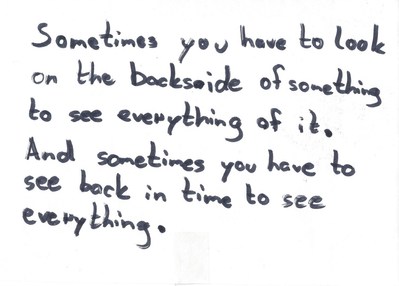 Sometimes you have to look
on the backside of something
to see everything of it.
And sometimes you have to
see back in time to see
everything.